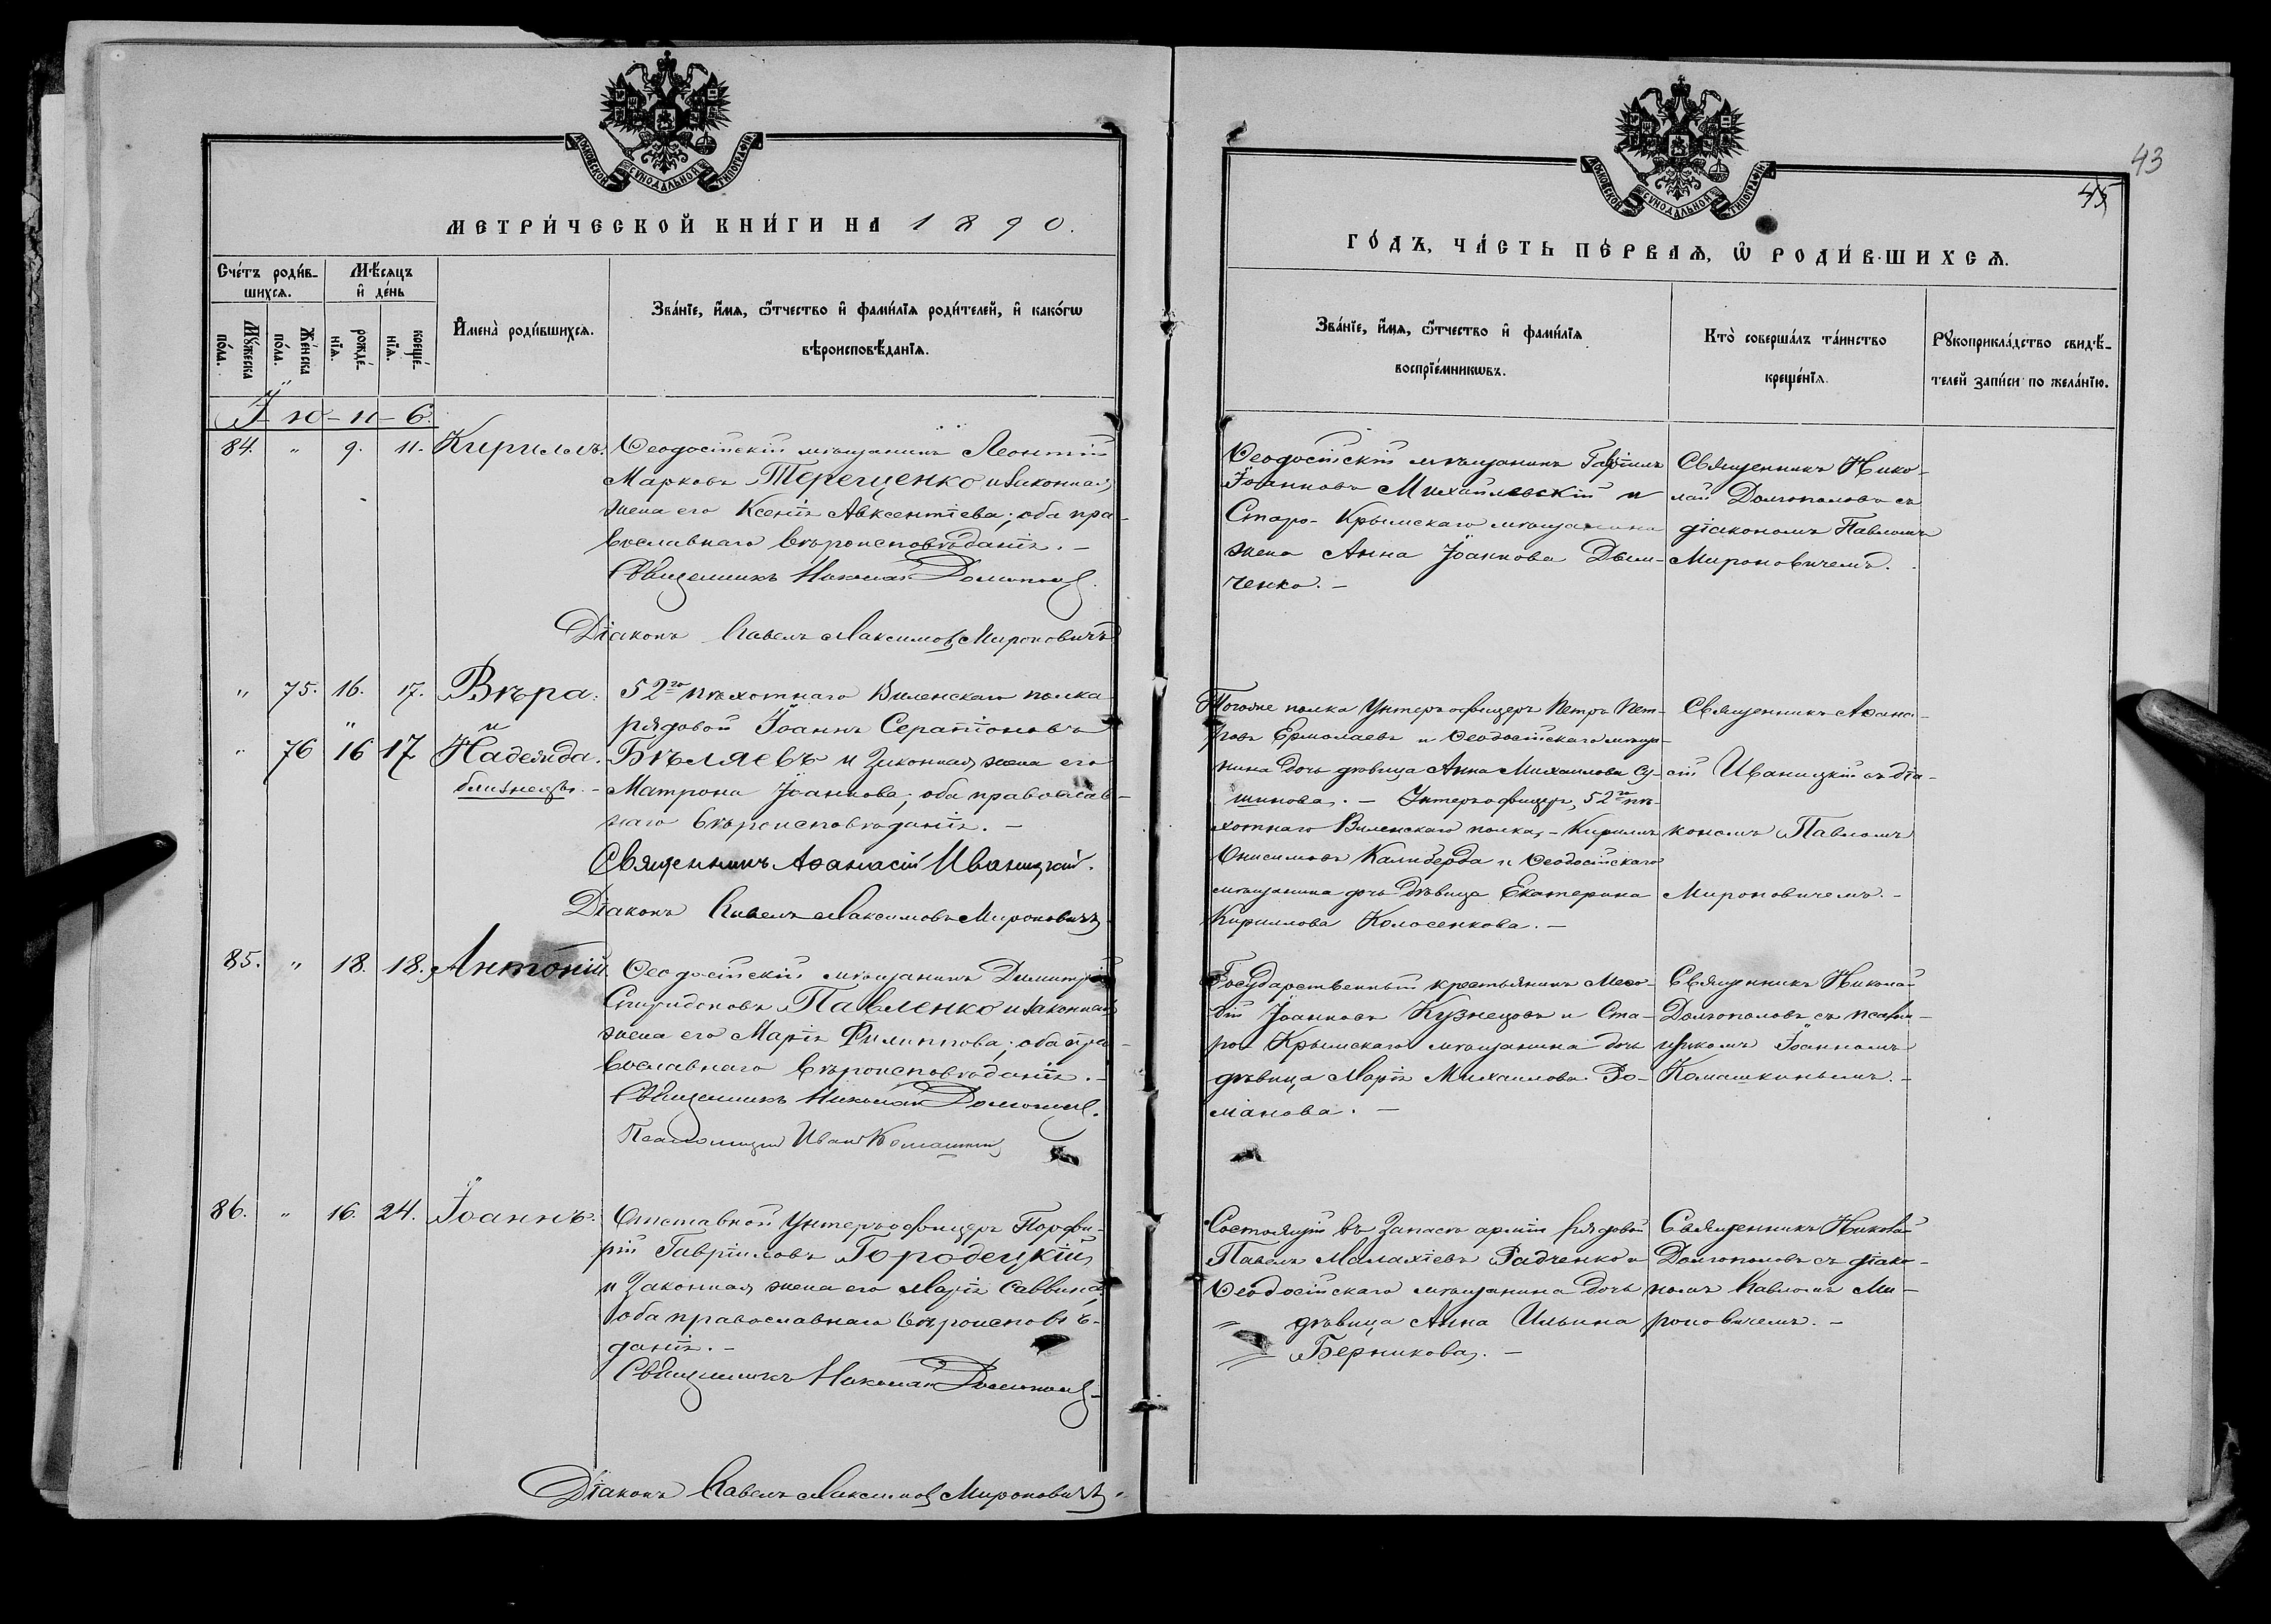 МОСКОВСКОЙ СѴНОДАЛЬНОЙ ТИПОГРАФІИ
МЕТРИ́ЧЕСКОЙ КНИ́ГИ НА 1890.
Сче́тъ роди́в-
шихсѧ.
Мѣ́сѧцъ
и҆ де́нь
Мꙋ́жеска
по́ла.
Же́нска
по́ла.
рожде́-
нїѧ.
креще́-
нїѧ.
И҆мена̀ роди́вшихсѧ.
Зва́нїе, и҆́мѧ, ѻ҆́тчество и҆ фами́лїѧ роди́телей, и҆ како́гѡ
вѣроисповѣ́данїѧ.
I-ю-н-б.
84. " 9. 11. Кириллъ. Ѳеодосійскій мѣщанинъ Леонтій
Марковъ Терещенко и законная
жена его Ксенія Авксентіева; оба пра-
вославнаго вѣроисповѣданія. –
Священникъ Николай Долгополов.
Діаконъ Павелъ Максимов Мироновичъ
" 75. 16. 17. Вѣра. 52го пѣхотнаго Виленскаго полка
и рядовой Іоаннъ Серапіоновъ
" 76 16 17 Надежда. Бѣляевъ и законная жена его
близнецы. – Матрона Іоаннова; оба православ-
наго вѣроисповѣданія. –
Священникъ Аѳанасій Иваницкій.
Діаконъ Павелъ Максимовъ Мироновичъ
85. " 18. 18. Антоній. Ѳеодосійскій мѣщанинъ Димитрій
Спиридоновъ Павленко и законная
жена его Марія Филиппова; оба пра-
вославнаго вѣроисповѣданія. –
Священникъ Николай Долгополов.
Псаломщик Иван Комашкин
86. " 16. 24. Іоаннъ. Отставной унтеръ-офицеръ Порфи-
рій Гавріиловъ Городецкій
и законная жена его Марія Саввина;
оба православнаго вѣроисповѣ-
данія. –
Священникъ Николай Долгополов
Діаконъ Павелъ Максимов Мироновичъ.
МОСКОВСКОЙ СѴНОДАЛЬНОЙ ТИПОГРАФІИ
43
45
ГО́ДЪ, ЧА́СТЬ ПЕ́РВАѦ, Ѽ РОДИ́ВШИХСѦ.
Зва́нїе, и҆́мѧ, ѻ҆́тчество и҆ фами́лїѧ
воспрїе́мникѡвъ.
Кто̀ соверша́лъ та́инство
креще́нїѧ.
Рꙋкоприкла́дство свидѣ́-
телей за́писи по жела́нїю.
Ѳеодосійскій мѣщанинъ Гавріилъ
Іоанновъ Михайлевскій и
Старо-Крымскаго мѣщанина
жена Анна Іоаннова Дем-
ченко. –
Священникъ Нико-
лай Долгополовъ съ
діакономъ Павломъ
Мироновичемъ.
Того же полка унтеръ офицеръ Петръ Пет-
ровъ Ермолаевъ и Ѳеодосійскаго мѣща-
нина дочь дѣвица Анна Михаилова Су-
шинова. – Унтеръ-офицеръ, 52го пѣ-
хотнаго Виленскаго полка, – Кириллъ
Онисимовъ Калиберда и Ѳеодосійскаго
мѣщанина дочь дѣвица Екатерина
Кириллова Колосенкова. –
Священникъ Аѳана-
сій Иваницкій съ діа-
кономъ Павломъ
Мироновичемъ. –
Государственный крестьянинъ Меѳо-
дій Іоанновъ Кузнецовъ и Ста-
ро-Крымскаго мѣщанина дочь
дѣвица Марія Михаилова Ро-
манова. –
Священникъ Николай
Долгополовъ съ псалом-
щикомъ Іоанномъ
Комашкинымъ. –
Состоящій въ запасѣ арміи рядовой
Павелъ Малахіевъ Радченко и
Ѳеодосійскаго мѣщанина дочь
дѣвица Анна Ильина
Берникова. –
Священникъ Николай
Долгополовъ съ діако-
номъ Павломъ Ми-
роновичемъ. –